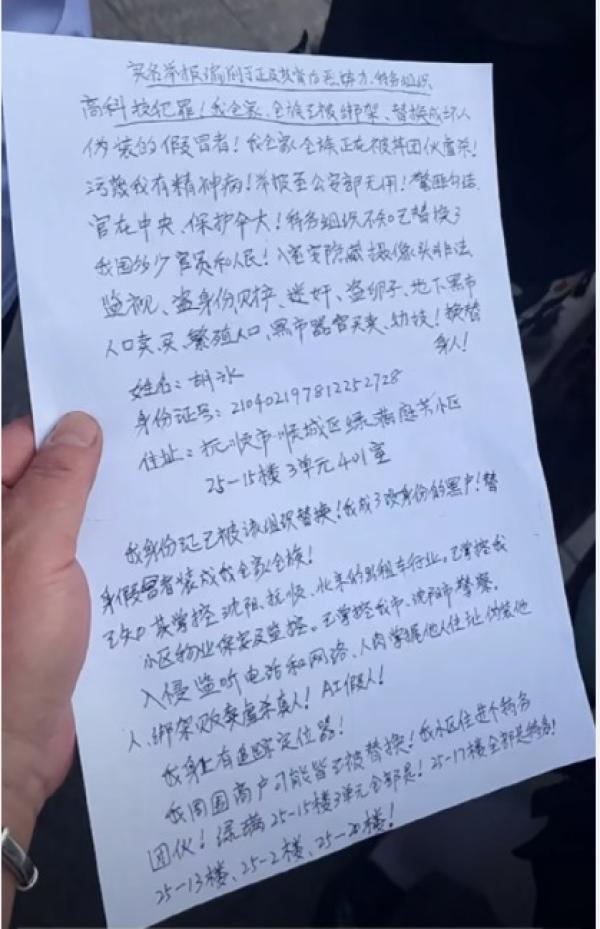 实名举报
高科技犯罪！我全家、全族已被绑架、替换成坏人
伪装的假冒者！我全家全族正在被其团伙虐杀！
污蔑我有精神病！举报至公安部无用！警匪勾结
官在中央、保护伞大！特务组织不知已替换了
我国多少官员和人民！入室安隐藏摄像头非法
监视、盗身份、迷奸、盗卵子、地下黑市
人口卖买、繁殖人口、黑市器官买卖、幼妓！换替
身人！
姓名：胡冰
身份证号：210402197812252728
住址：抚顺市顺城区绿满庭芳小区
25-15楼3单元401室
我身份证已被该组织替换！我成了没身份的黑户！替
身假冒者装成我全家全族！
已知其掌控沈阳、抚顺、北京的出租车行业。已掌控我
小区物业保安及监控。已掌控我市、沈阳市警察。
入侵监听电话和网络、人肉掌握他人住址、伪装他
人、绑架贩卖虐杀真人！AI假人！
我身上有追踪定位器！
我周围商户可能皆已被替换！我小区住进个特务
团伙！绿满25-15楼3单元全部是！25-17楼全部是特务！
25-13楼、25-2楼、25-20楼！